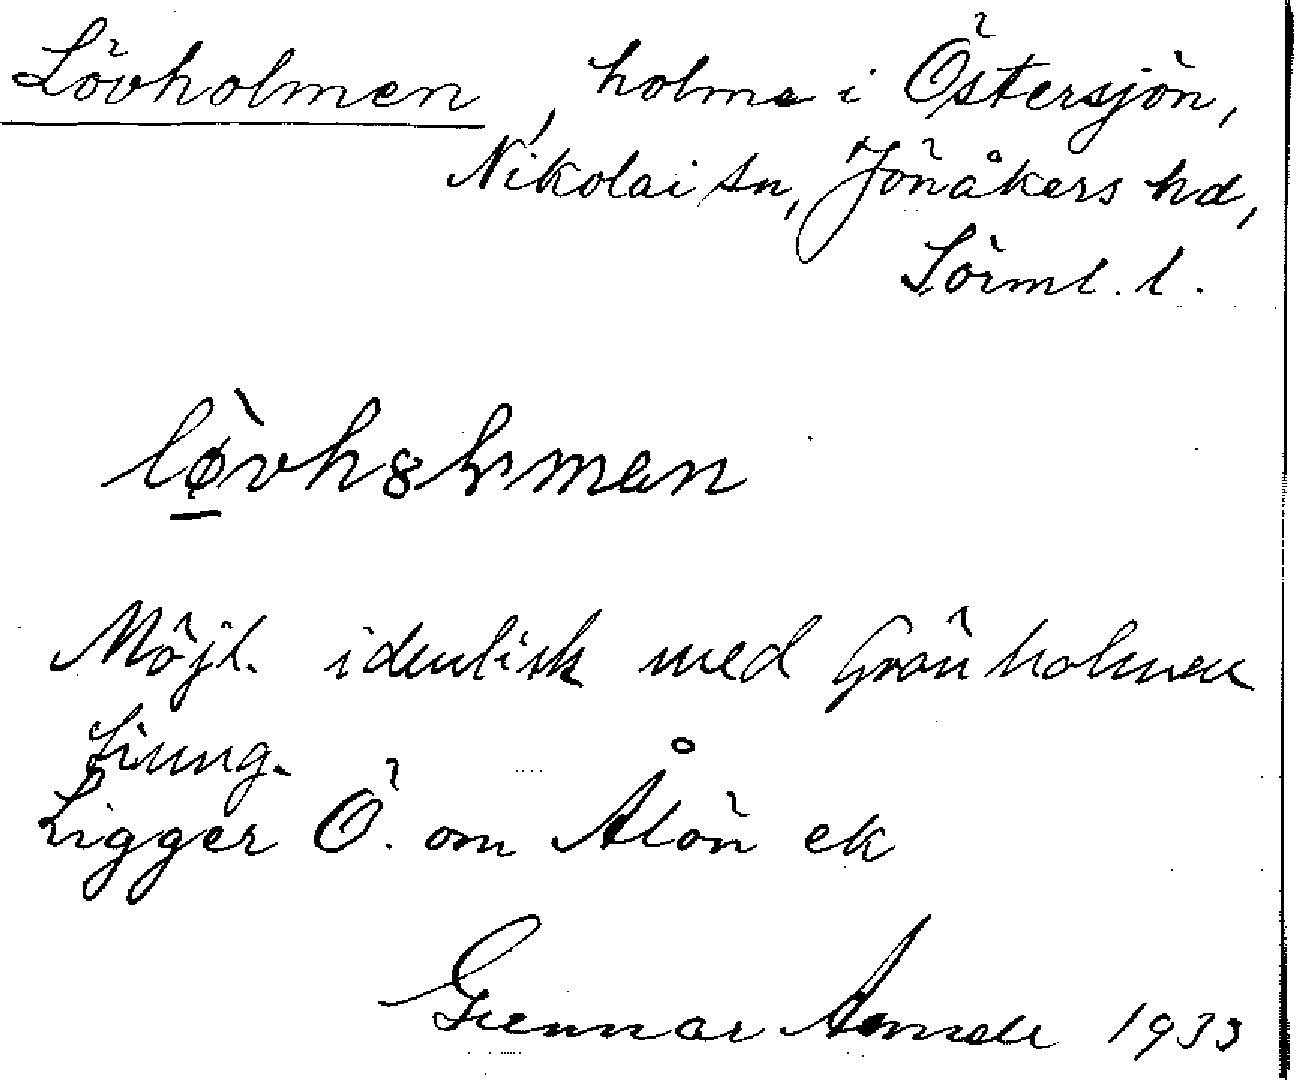 Lövholmen, holme i Östersjön,
Nikolai sn, Jönåkers hd,
Sörml. l.
lø̀vhȣlmen
Möjl. identisk med Grönholmen
Ligger Ö. om Ålön ek
Gunnar 1933